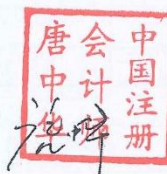 中国注册
会计师
唐中华